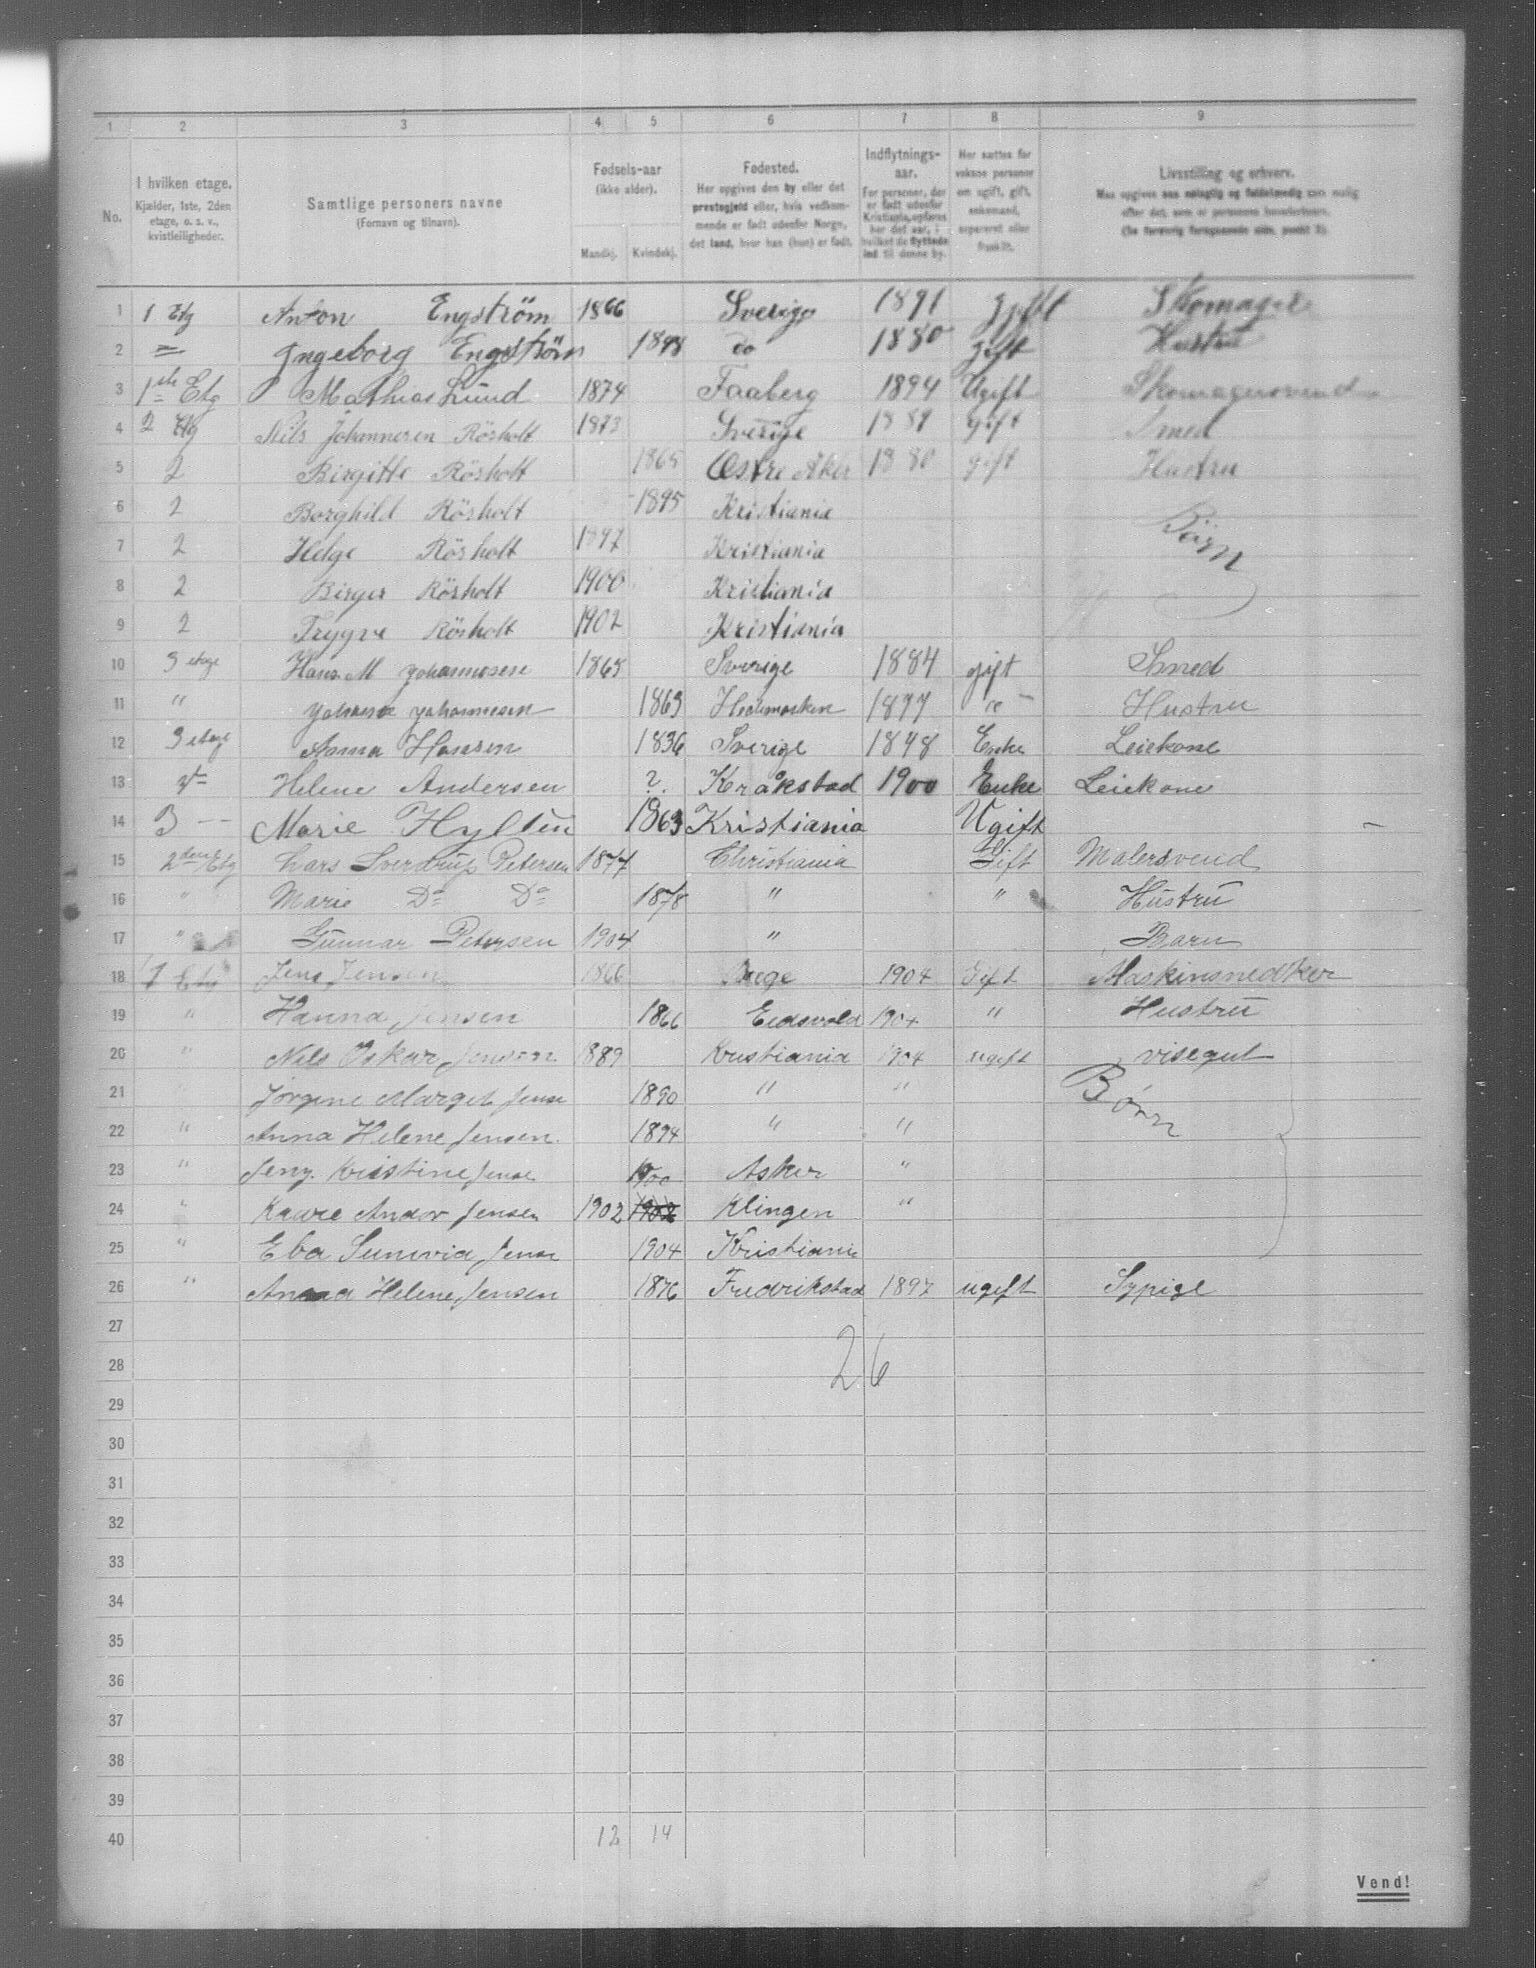 1 2 3 4 5 6 7 8 9
No.
I hvilken etage.
Kjælder, 1ste, 2den
etage, o. s. v.,
kvistleiligheder.
Samtlige personers navne
(Fornavn og tilnavn).
Fødsels-aar
(ikke alder).
Mandkj. Kvindekj.
Fødested.
Her opgives den by eller det
prestegjeld eller, hvis vedkom-
mende er født udenfor Norge,
det land, hvor han (hun) er født.
Indflytnings-
aar.
For personer, der
er født udenfor
Kristiania, opføres
her det aar, i
hvilket de flyttede
ind til denne by.
Her sættes for
voksne personer
om ugift, gift,
enkemand,
separeret eller
fraskilt.
Livsstilling og erhverv.
Maa opgives saa nøiagtig og fuldstændig som mulig
efter det, som er personens hovederhverv.
(Se forøvrig foregaaende side, punkt 3).
1 1 Etg Anton Engström 1866 Sverige 1891 gift Skomager
2 = Ingeborg Engström do 1880 gift Hustru
3 1ste Etg Mathias Lund 1874 Faaberg 1894 Ugift Skomagersvend
4 2 Etg Nils Johannesen Rösholt 1873 Sverige 1889 gift Smed
5 2 Birgitte Rösholt 1865 Østre Aker 1880 gift Hustru
6 2 Borghild Rösholt 1895 Kristiania
Börn
7 2 Helge Rösholt 1897 Kristiania
8 2 Birger Rösholt 1900 Kristiania
9 2 Trygve Rösholt 1902 Kristiania
10 3 etage Hans M Johannesen 1865 Sverige 1884 gift Smed
11 " Johanne Johannesen 1863 Hedemarken 1877 " — Hustru
12 3 etage Anna Hansen 1836 Sverige 1848 Enke Leiekone
13 Helene Andersen ? Kråkstad 1900 Enke Leiekone
14 3 -- Marie Hyltén 1863 Kristiania Ugift —
15 2den Etg Lars Sverdrup Petersen 1877 Christiania Gift Malersvend
16 " Marie Do Do 1878 " " Hustru
17 " Gunnar Petersen 1904 " Barn
18 1 Etg Jens Jensen 1866 1904 Gift Maskinsnedker
19 " Hanna Jensen 1866 Eidsvold 1904 " Hustru
20 " Nils Oskar Jensen 1889 Kristiania 1904 ugift visegut
21 " Jørgine Marget Jense 1890 " "
Børn
22 " Anna Helene Jensen. 1894 " "
23 " Jeny. Kristine Jense 1900 Asker "
24 " Kaare Andor Jensen 1902 1902 Klingen "
25 " Eba Sunivia Jense 1904 Kristiania
26 " Anna Helene Jensen 1876 Fredrikstad 1897 ugift Sypige
27
26
28
29
30
31
32
33
34
35
36
37
38
39
40 12 14
Vend!